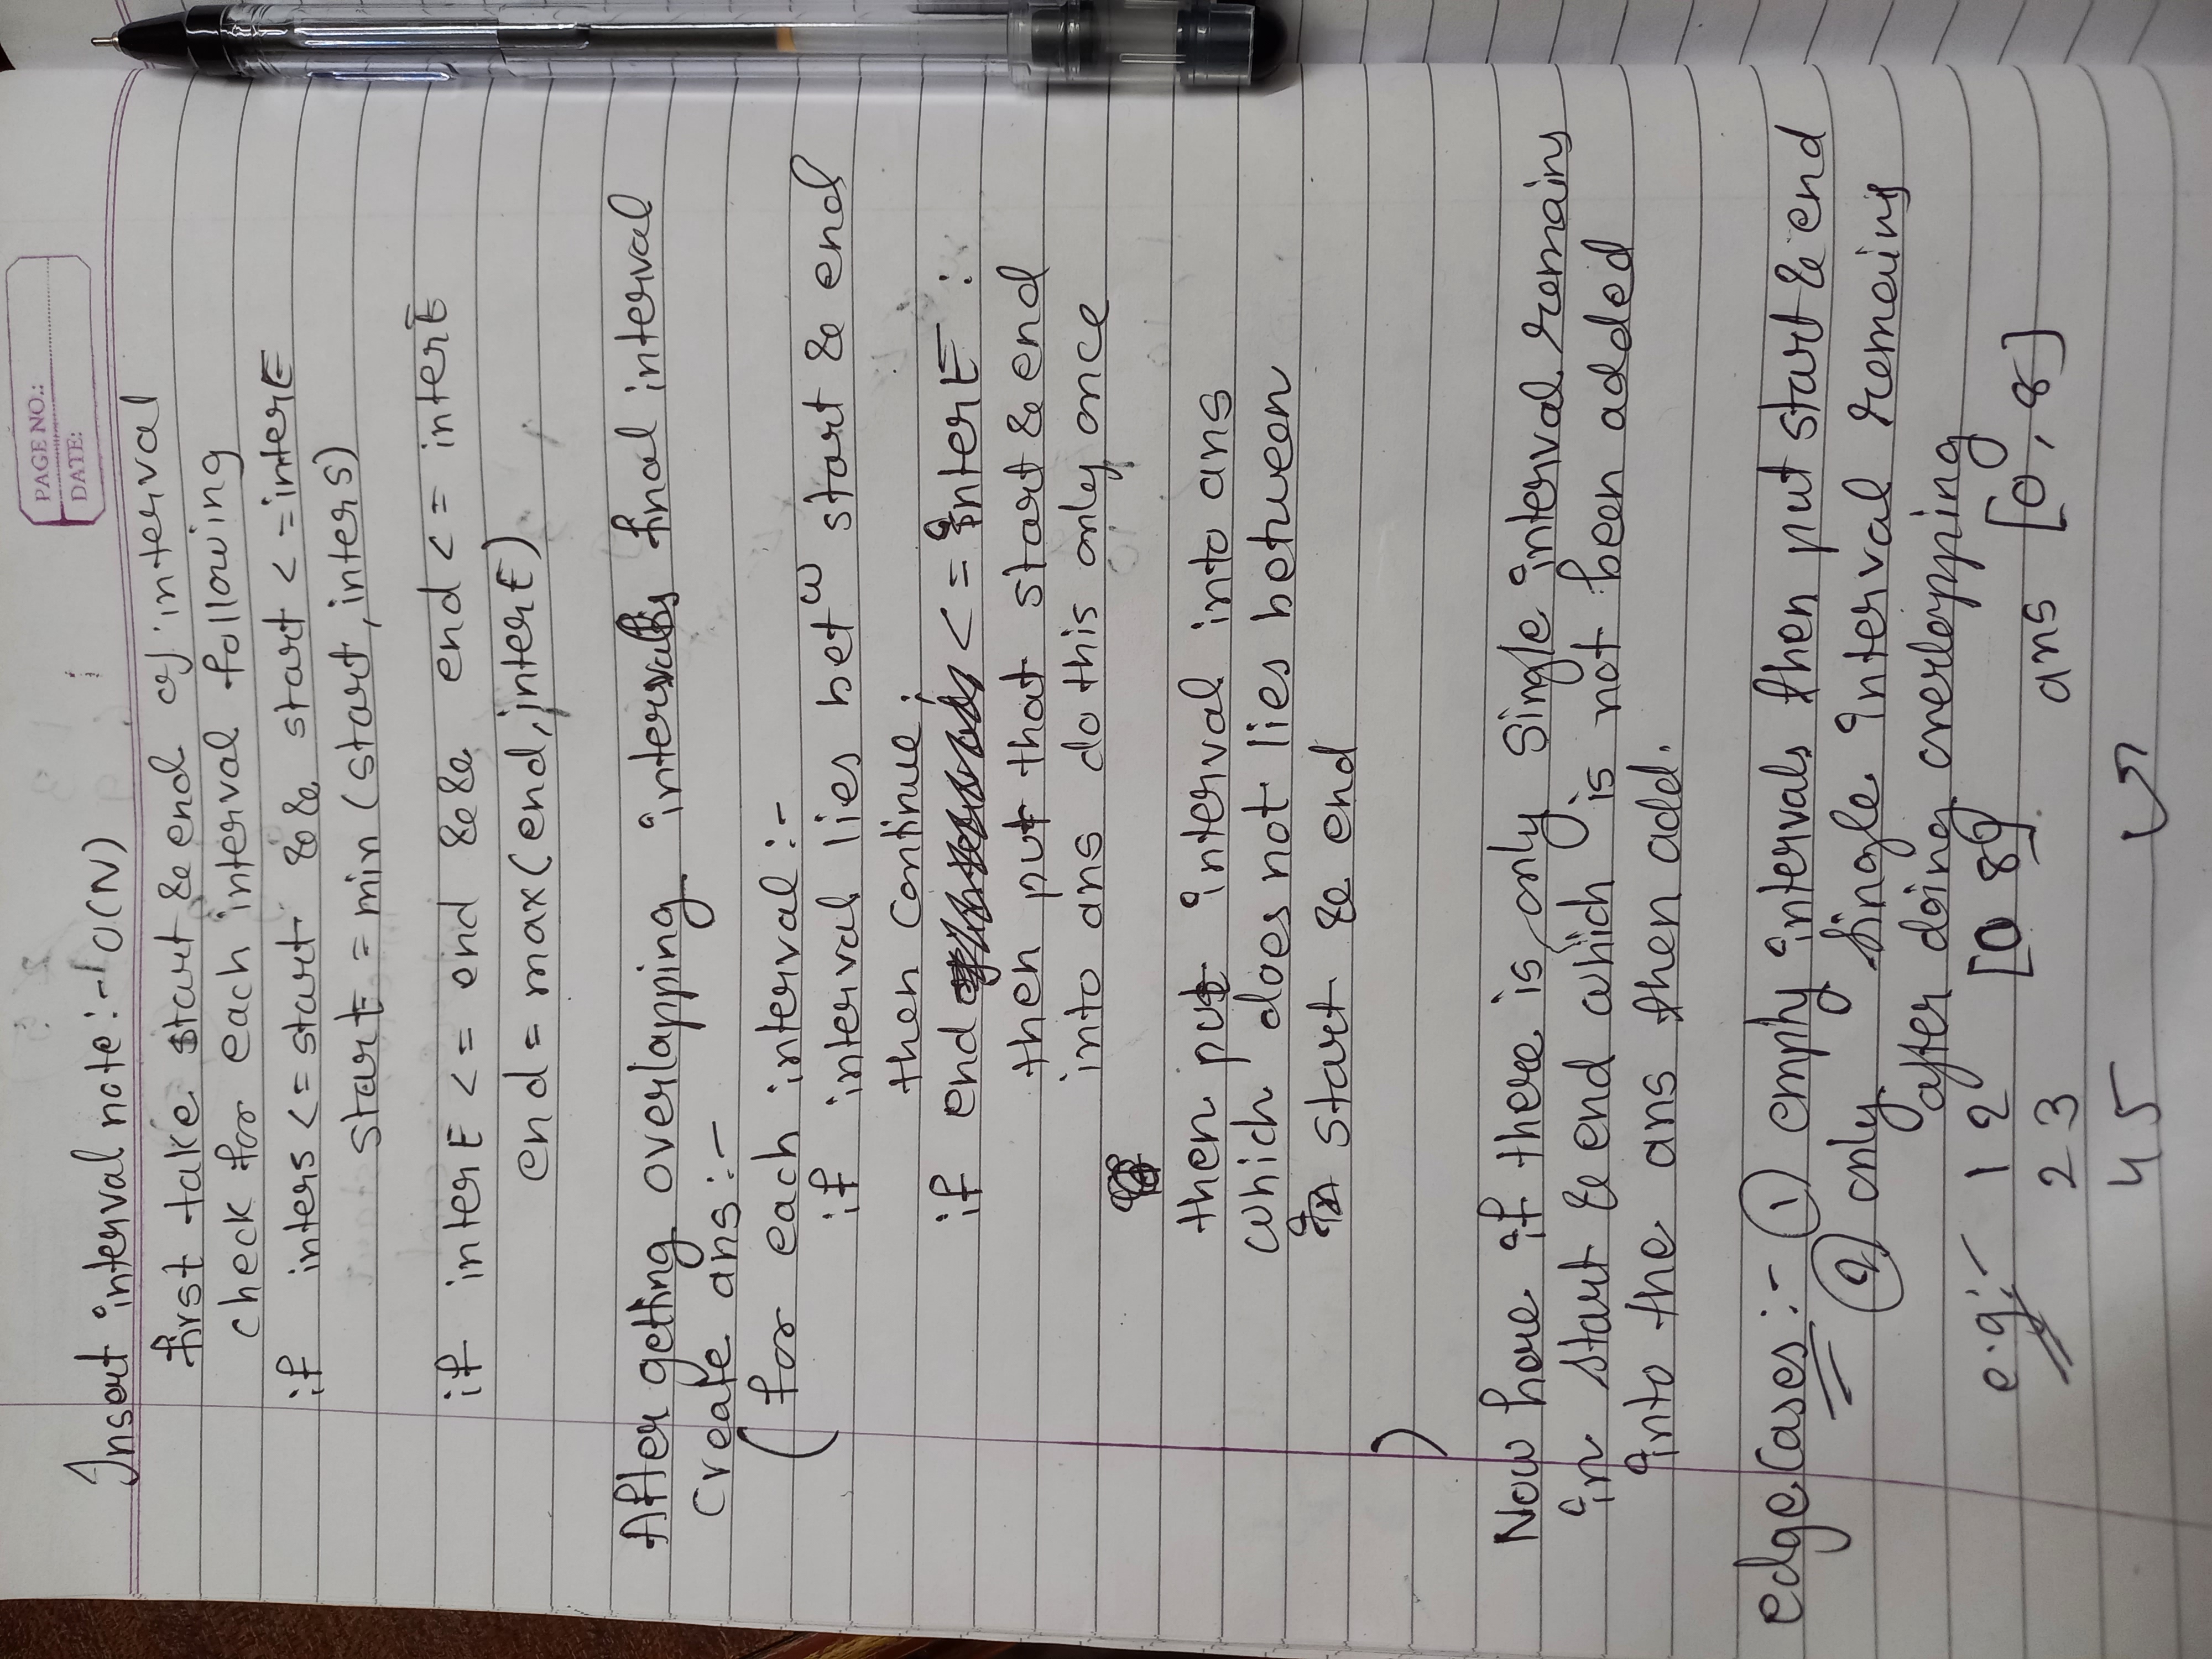 PAGE NO.:
DATE:
Insert interval note :- O(N)
first take start & end of interval
check for each interval following
if inters <= start && start <= interE
start = min (start, inters)
if interE <= end && end <= interE
end = max(end, interE)
After getting overlapping intervals final interval
Create ans :-
( for each interval :-
if interval lies betw start & end
then continue;
if end <= interE :
then put that start & end
into ans do this only once
then put interval into ans
which does not lies between
start & end
)
Now here if there is only single interval remains
in start & end which is not been added
into the ans then add.
edge cases :- ① empty intervals then put start & end
② only single interval remains
after doing overlapping
e.g :- 1 2 [0 8] ans [0, 8]
2 3
4 5